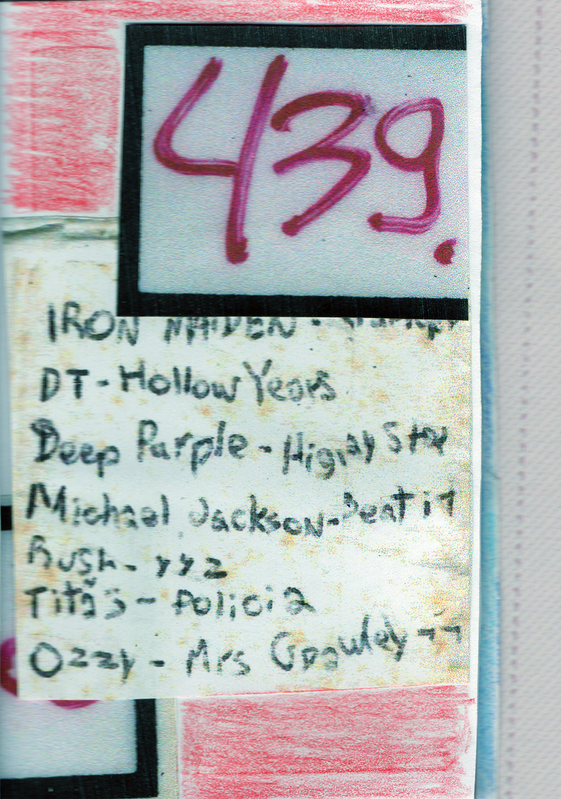 439.
IRON MAIDEN -
DT - Hollow Years
Deep Purple - Higway Star
Michael Jackson - Beat it
Rush - YYZ
Titãs - Policia
Ozzy - Mrs